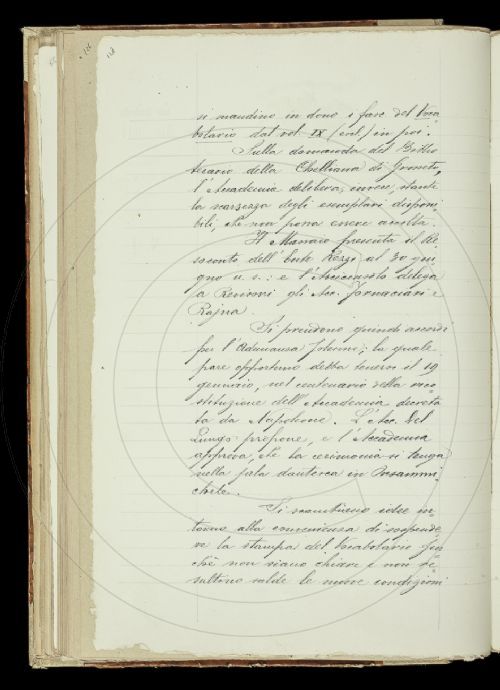 118
si mandino in dono i fasc. del Voca=
bolario dal vol. IX (incl.) in poi.
Sulla domanda del Biblio=
tecario della Chelliana di Grosseto,
l'Accademia delibera, invece, stante
la scarsezza degli esemplari disponi=
bili, che non possa essere accolta.
Il Massaio presenta il Re=
soconto dell'Ente Rezzi al 30 giu=
gno u. s.: e l'Arciconsolo delega
a Revisori gli Acc. Fornaciari e
Rajna.
Si prendono quindi accordi
per l'Adunanza solenne; la quale
pare opportuno debba tenersi il 19
gennaio, nel centenario della rico=
stituzione dell'Accademia decreta=
ta da Napoleone. L'Acc. Del
Lungo propone, e l'Accademia
approva, che la cerimonia si tenga
nella sala dantesca in Orsanmi=
chele.
Si scambiano idee in=
torno alla convenienza di sospende=
re la stampa del Vocabolario fin=
chè non siano chiare e non ri=
sultino salde le nuove condizioni